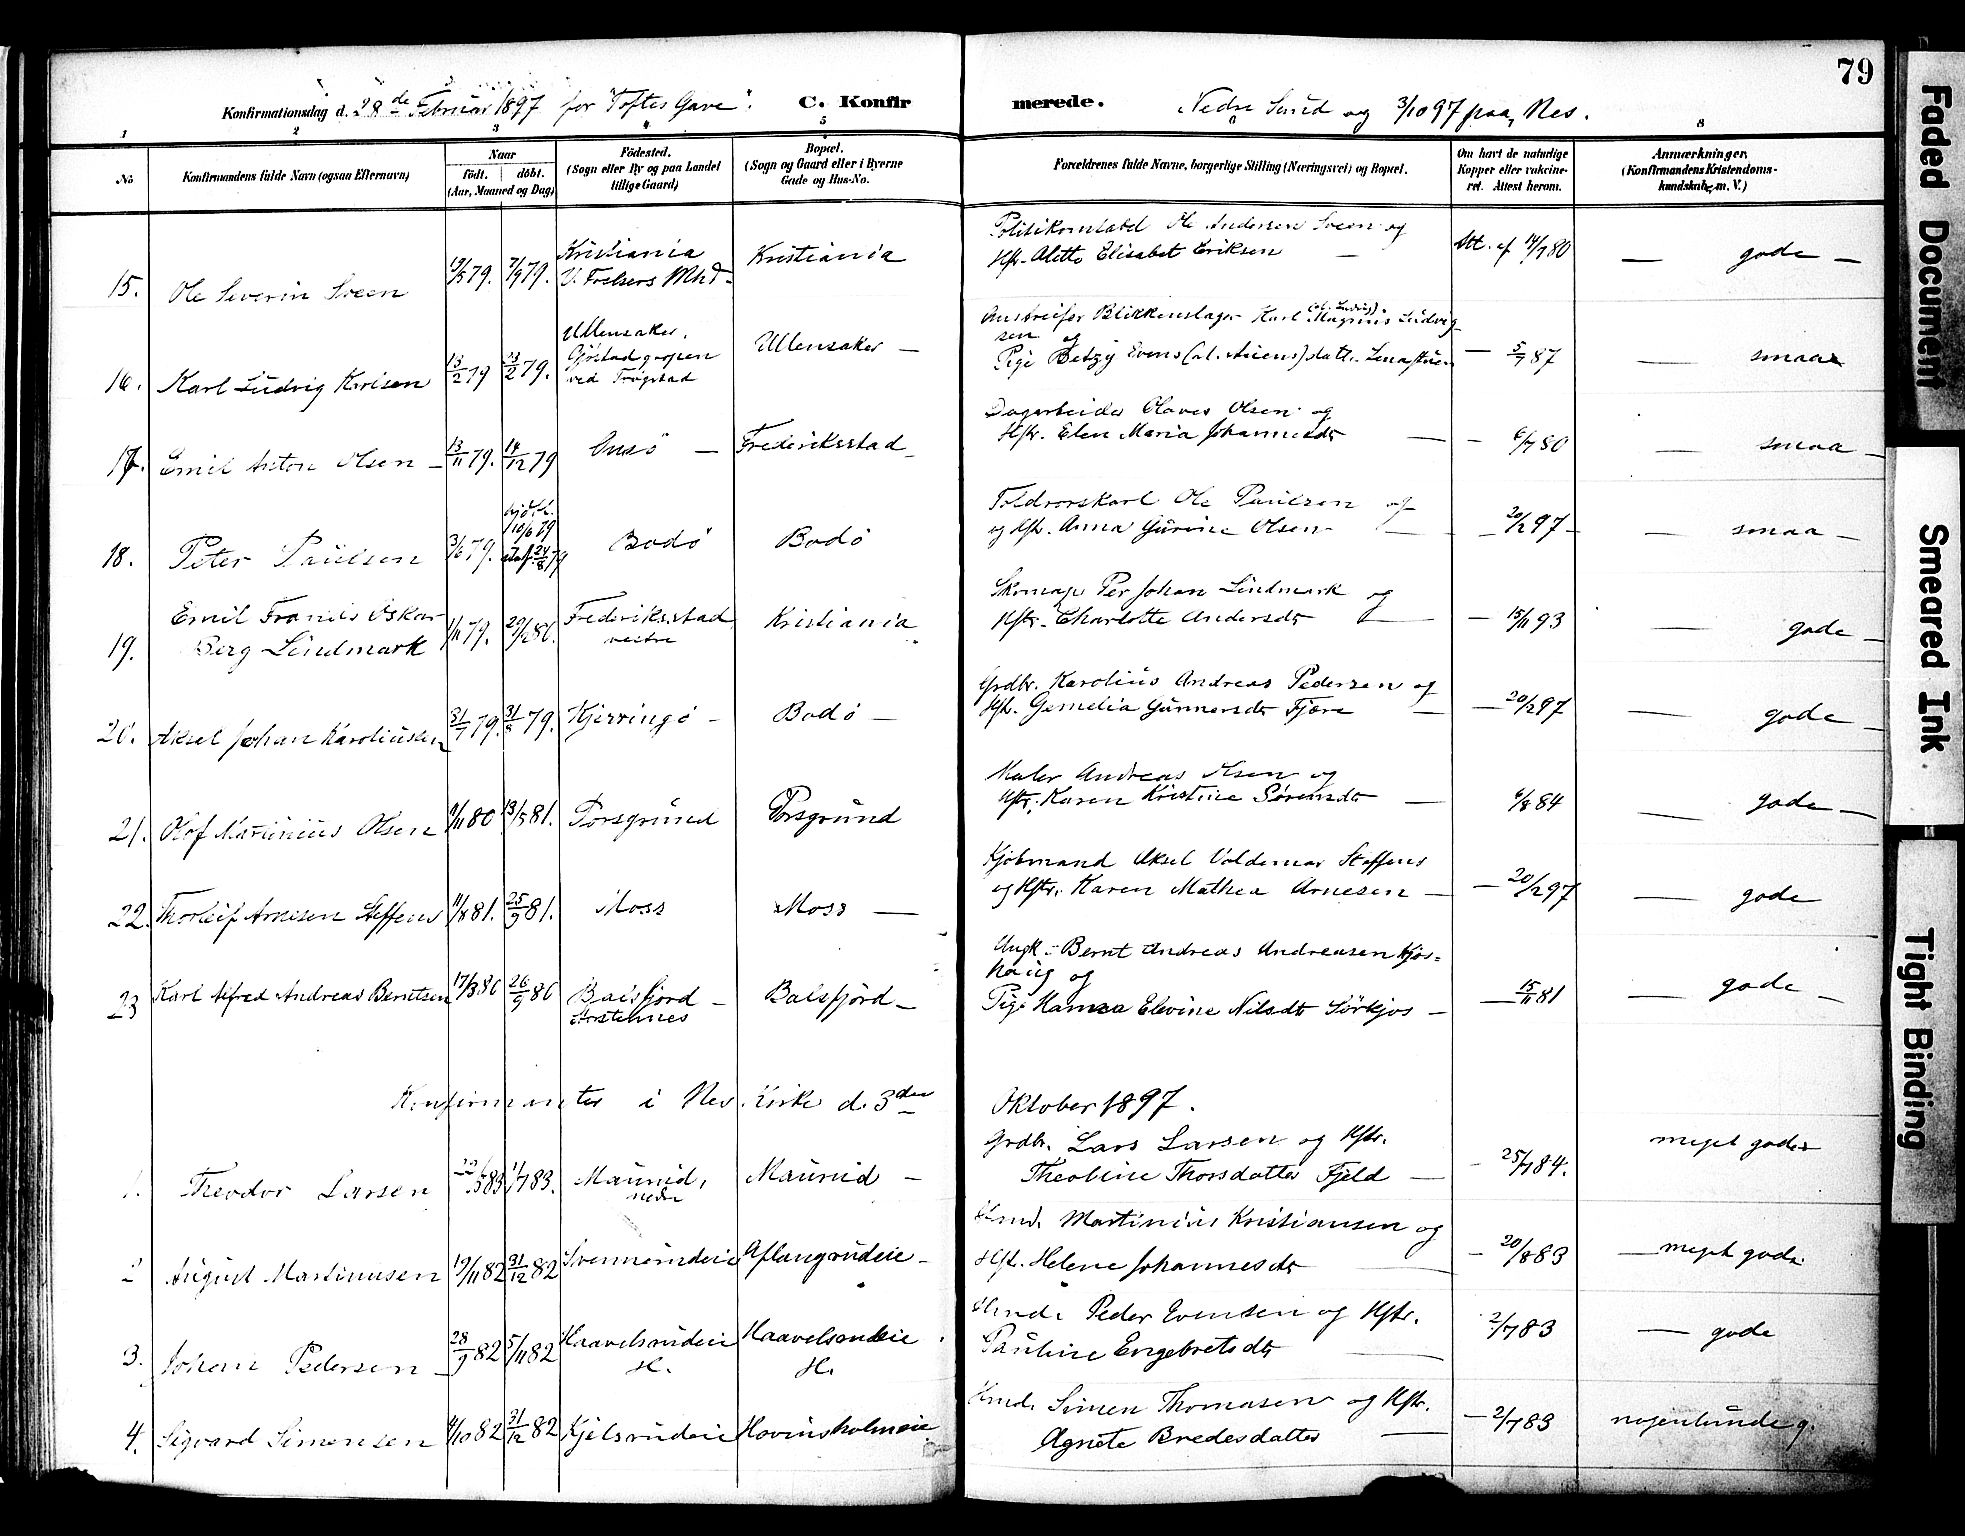 79
Konfirmationsdag d. 28de Februar 1897 for "Toftes Gave". C. Konfirmerede. Nedre Sund og 3/10 97 paa Nes.
1 2 3 4 5 6 8
No
Konfirmandens fulde Navn (ogsaa Efternavn)
Naar
født. døbt.
(Aar, Maaned og Dag)
Fødested.
(Sogn eller By og paa Landet
tillige Gaard)
Bopæl.
(Sogn og Gaard eller i Byerne
Gade og Hus-No.
Forældrenes fulde Navne, borgerlige Stilling (Næringsvei) og Bopæl.
Om havt de naturlige
Kopper eller vakcine-
ret. Attest herom.
Anmærkninger.
(Konfirmandens Kristendoms-
kundskab, m. V.)
Politikonstabel Ole Andersen Sveen og
Hstr. Alette Elisabet Eriksen
15. Ole Severin Sveen 79. 7/9 79. Kristiania
V. Frelsers Mhd. Kristiania Att. af 14/7 80 — gode —
Karl Magnus Ludvig
sen og
Pige Betzy Evens
16. Karl Ludvig Karlsen 13/2 79 23/2 79. Ullensaker,
ved Trøgstad Ullensaker — — 5/7 87 — smaa
Dagarbeider Olaves Olsen og
Hstr. Elen Maria Johannesdtr —
17. Emil Anton Olsen — 13/11 79. 14/12 79 Onsø — Frederiksstad — — 6/7 80 — smaa —
Ole Paulsen og
og Hstr. Anna Gurine Olsen —
18. Peter Paulsen 3/6 79. hjd.
10/6 79
24/8 79 Bodø Bodø — 20/2 97 — — smaa —
Skomag Per Johan Lindmark og
Hstr. Charlotte Andersdtr —
19. Emil Frants Oskar
Berg Lindmark 79. Frederiksstad
vestre Kristiania — 15/11 93 — gode —
Grdbr. Karolius Andreas Pedersen og
Hstr. Gemelia Gunnersdtr Fjære —
20. Aksel Johan Karoliussen 31/7 79. 31/8 79. Kjerringø — Bodø — — 20/2 97 — gode —
Maler Andreas Olsen og
Hstr. Karen Kristine Sørensdtr —
21. Olof Martinius Olsen 80 13/5 81. Porsgrund Porsgrund 6/8 84 — gode —
Kjøbmand Aksel Valdemar Steffens
og Hstr. Karen Mathea Arnesen —
22. Thorleif Arnesen Steffens 11/8 81. 25/9 81. Moss Moss — — 20/2 97 — gode
Ungk. Bernt Andreas Andreasen Kjos=
haug og
Pige Hansa Elevine Nilsdtr Sörkjos —
23 Karl Alfred Andreas Berntsen 17/3 80 26/9 80 Balsfjord —
Balsfjord — — 15/11 81 — gode —
Konfirmanter i Nes Kirke d. 3den Oktober 1897.
Grdbr. Lars Larsen og Hstr.
Theoline Thorsdatter Fjeld —
1. Theodor Larsen 83 1/7 83. Maurud,
nedre Maurud — — 25/7 84. meget godes
Hmd. Martinius Kristiansen og
Hstr. Helene Johannesdtr —
2 August Martinusen 19/11 82 31/12 82 Svennerudeie Aflangrudeie — — 20/8 83 — meget gode
Hmd. Peder Evensen og Hstr.
Pauline Engebretsdtr —
3. Johan Pedersen — 28/9 82 5/11 82 Haavelsrudeie
H. Haavelsrudeie
H. 2/7 83 — gode
Hmd. Simen Thomasen og Hstr.
Agnete Bredesdatter —
4. Sigvard Simensen 4/10 82 31/12 82 Kjelsrudeie Hovinsholmeie — 2/7 83 nogenlunde g.
Faded Document
Smeared Ink
Tight Binding